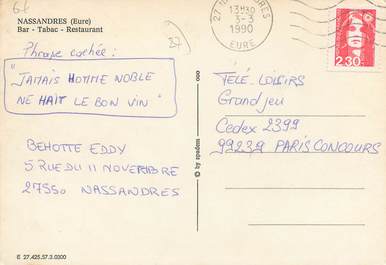 61
NASSANDRES (Eure)
Bar - Tabac - Restaurant
37
Phrase cachée :
"JAMAIS HOMME NOBLE
NE HAIT LE BON VIN"
BEHOTTE EDDY
5 RUE DU 11 NOVEMBRE
27550 NASSANDRES
E 27.425.57.3.0300
by spadem
13H30
3-3
1990
EURE
2,30
TÉLÉ-LOISIRS
Grand jeu
Cedex 2399
99239 PARIS CONCOURS